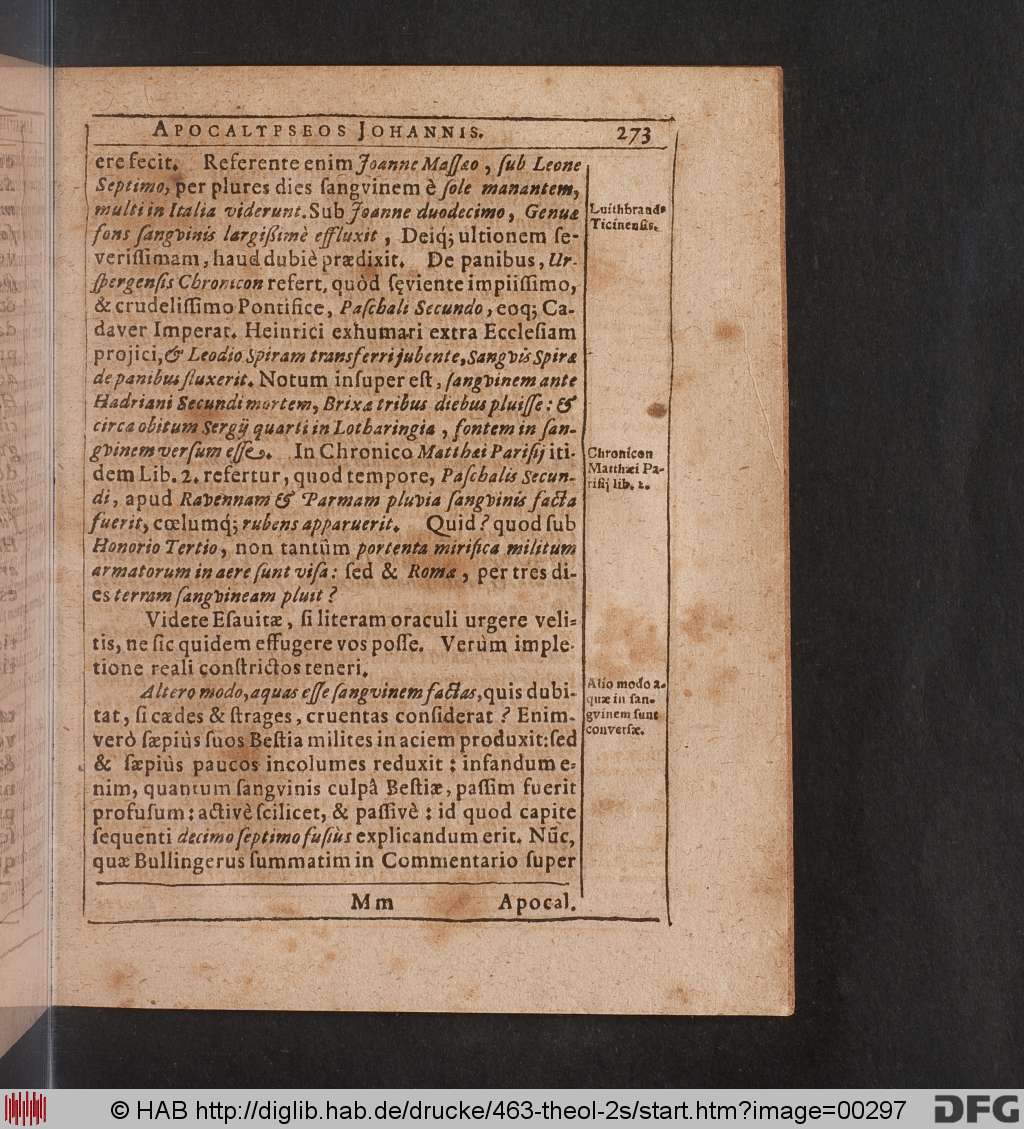 APOCALYPSEOS JOHANNIS. 273
ere fecit. Referente enim Joanne Maſſæo, ſub Leone
Septimo, per plures dies ſangvinem è ſole manantem,
multi in Italia viderunt. Sub Joanne duodecimo, Genuæ
fons ſangvinis largißimè effluxit, Deiq; ultionem ſe-
veriſſimam, haud dubiè prædixit. De panibus, Ur-
ſpergenſis Chronicon refert, quòd ſęviente impiiſſimo,
& crudeliſſimo Pontifice, Paſchali Secundo, eoq; Ca-
daver Imperat. Heinrici exhumari extra Eccleſiam
projici, & Leodio Spiram transferri jubente, Sangvis Spiræ
de panibus fluxerit. Notum inſuper eſt, ſangvinem ante
Hadriani Secundi mortem, Brixæ tribus diebus pluiſſe: &
circa obitum Sergij quarti in Lotharingia, fontem in ſan-
gvinem verſum eſſe. In Chronico Matthæi Pariſij iti-
dem Lib. 2. refertur, quod tempore, Paſchalis Secun-
di, apud Ravennam & Parmam pluvia ſangvinis facta
fuerit, cœlumq́; rubens apparuerit. Quid? quod ſub
Honorio Tertio, non tantùm portenta mirifica militum
armatorum in aere ſunt viſa: ſed & Romæ, per tres di-
es terram ſangvineam pluit?
Videte Eſauitæ, ſi literam oraculi urgere veli-
tis, ne ſic quidem effugere vos poſſe. Verùm imple-
tione reali conſtrictos teneri.
Altero modo, aquas eſſe ſangvinem factas, quis dubi-
tat, ſi cædes & ſtrages, cruentas conſiderat? Enim-
verò ſæpiùs ſuos Beſtia milites in aciem produxit: ſed
& ſæpiùs paucos incolumes reduxit: infandum e-
nim, quantum ſangvinis culpâ Beſtiæ, paſſim fuerit
profuſum: activè ſcilicet, & paſſivè: id quod capite
ſequenti decimo ſeptimo fuſiùs explicandum erit. Nũc,
quæ Bullingerus ſummatim in Commentario ſuper
Mm Apocal.
Luithbrands
Ticinenſis.
Chronicon
Matthæi Pa-
riſij lib. 2.
Alio modo a-
quæ in ſan-
gvinem ſunt
converſæ.
© HAB http://diglib.hab.de/drucke/463-theol-2s/start.htm?image=00297
DFG